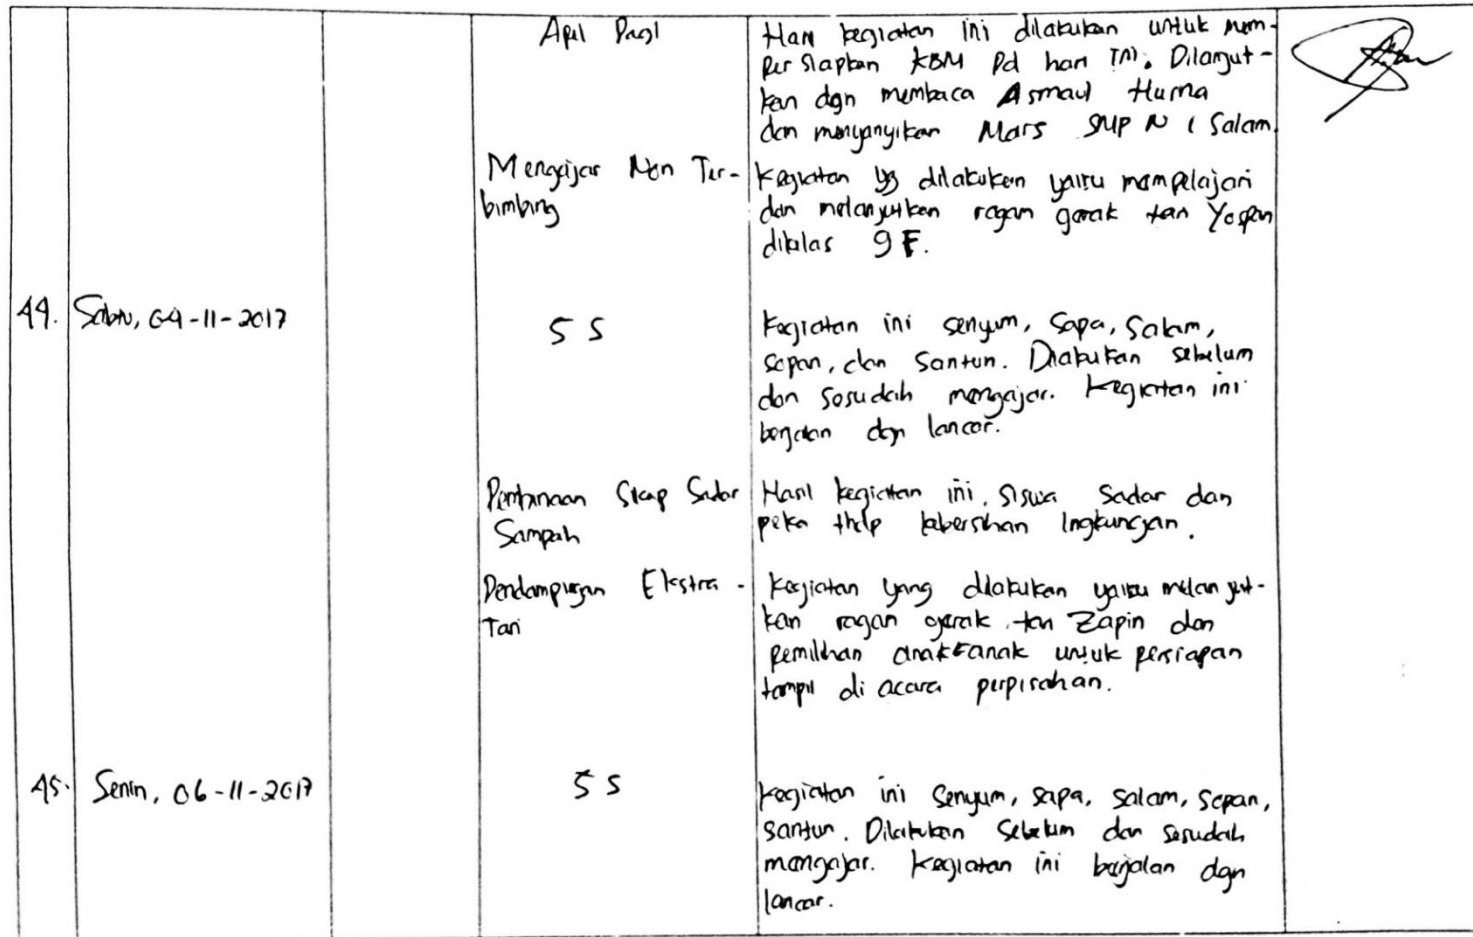 Apel Pagi
Hasil kegiatan ini dilakukan untuk mem-
persiapkan KBM pd hari ini. Dilanjut-
kan dgn membaca Asmaul Husna
dan menyanyikan Mars SMP N 1 Salam.
Mengajar Non Ter-
bimbing
Kegiatan yg dilakukan yaitu mempelajari
dan melanjutkan ragam gerak tari Yospan
dikelas 9F.
44. Sabtu, 04-11-2017
5 S
Kegiatan ini senyum, sapa, salam,
sopan, dan santun. Dilakukan sebelum
dan sesudah mengajar. Kegiatan ini
berjalan dgn lancar.
Pembinaan Sikap Sadar
Sampah
Hasil kegiatan ini, siswa sadar dan
peka thdp kebersihan lingkungan.
Pendampingan Ekstra -
Tari
Kegiatan yang dilakukan yaitu melanjut-
kan ragan gerak tari Zapin dan
pemilihan anak-anak untuk persiapan
tampil di acara perpisahan.
45. Senin, 06-11-2017
5 S
Kegiatan ini senyum, sapa, salam, sopan,
santun. Dilakukan sebelum dan sesudah
mengajar. Kegiatan ini berjalan dgn
lancar.